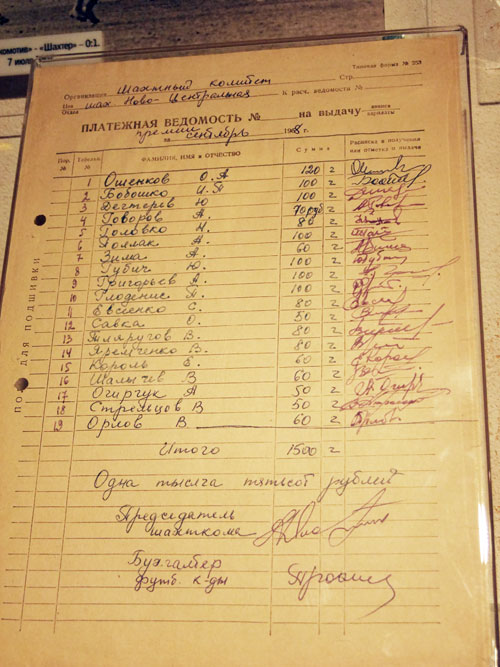 «Шахтер» - 0:1.
7 июля
Типовая форма №
Организация Шахтный комитет Стр.
Цех шах Ново-Центральная К расч. ведомости №
Отдел
ПЛАТЕЖНАЯ ВЕДОМОСТЬ № на выдачу аванса зарплаты
премии
за сентябрь 1968 г.
Пор. № Табельн. № ФАМИЛИЯ, ИМЯ и ОТЧЕСТВО Сумма Расписка в получении или отметка о выдаче
1 Ошенков О.А 120 г
2 Бобошко И.П 100 г
3 Дегтерев Ю 100 г
4 Говоров А. 70 руб г
5 Головко Н. 80 г
6 Поллак А. 100 г
7 Зима А. 60 г
8 Губич Ю. 100 г
9 Григорьев А. 100 г
10 Глодение А. 100 г
11 Евсеенко С. 80 г
12 Савка О. 50 г
13 Тляругов В. 80 г
14 Яремченко В. 80 г
15 Король Е. 60 г
16 Шалычев В 60 г
17 Огирчук А 50 г
18 Стрельцов В 50 г
19 Орлов В. 60 г
Итого 1500 г
Одна тысяча пятьсот рублей
Председатель
шахткома
Бухгалтер
футб. к-ды
ПОЛЕ ДЛЯ ПОДШИВКИ